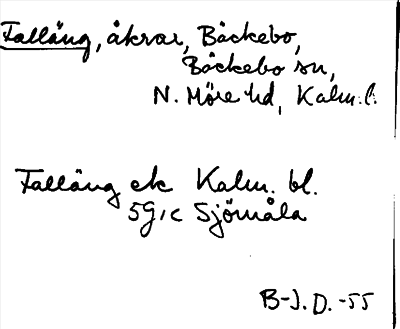 Falläng, åkrar, Bäckebo,
Bäckebo sn,
N. Möre hd, Kalm. l.
Falläng ek Kalm. bl.
5G, c Sjömåla
B-J. D. -55